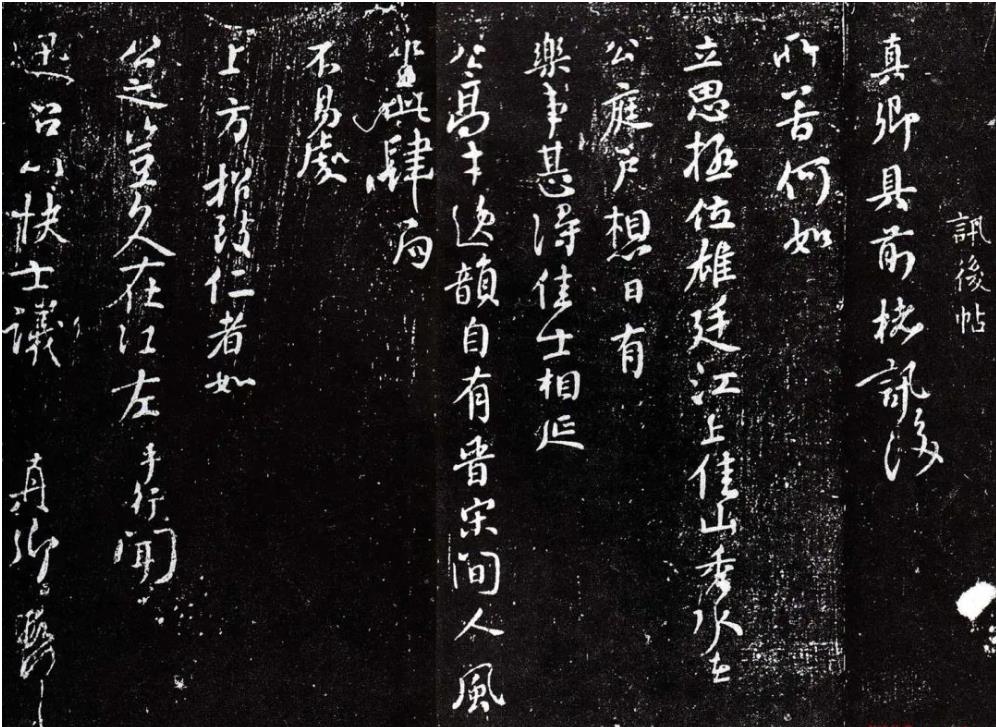 訊後帖
真卿具前楮訊後
所苦何如
立思極位雄廷江上佳山秀水在
公庭戶想日有
樂事甚得佳士相延
公高才逸韻自有晋宋間人風
此肆局
不易處
上方招致仁者如
公之豈久在江左手行聞
迅召以快士議 真卿